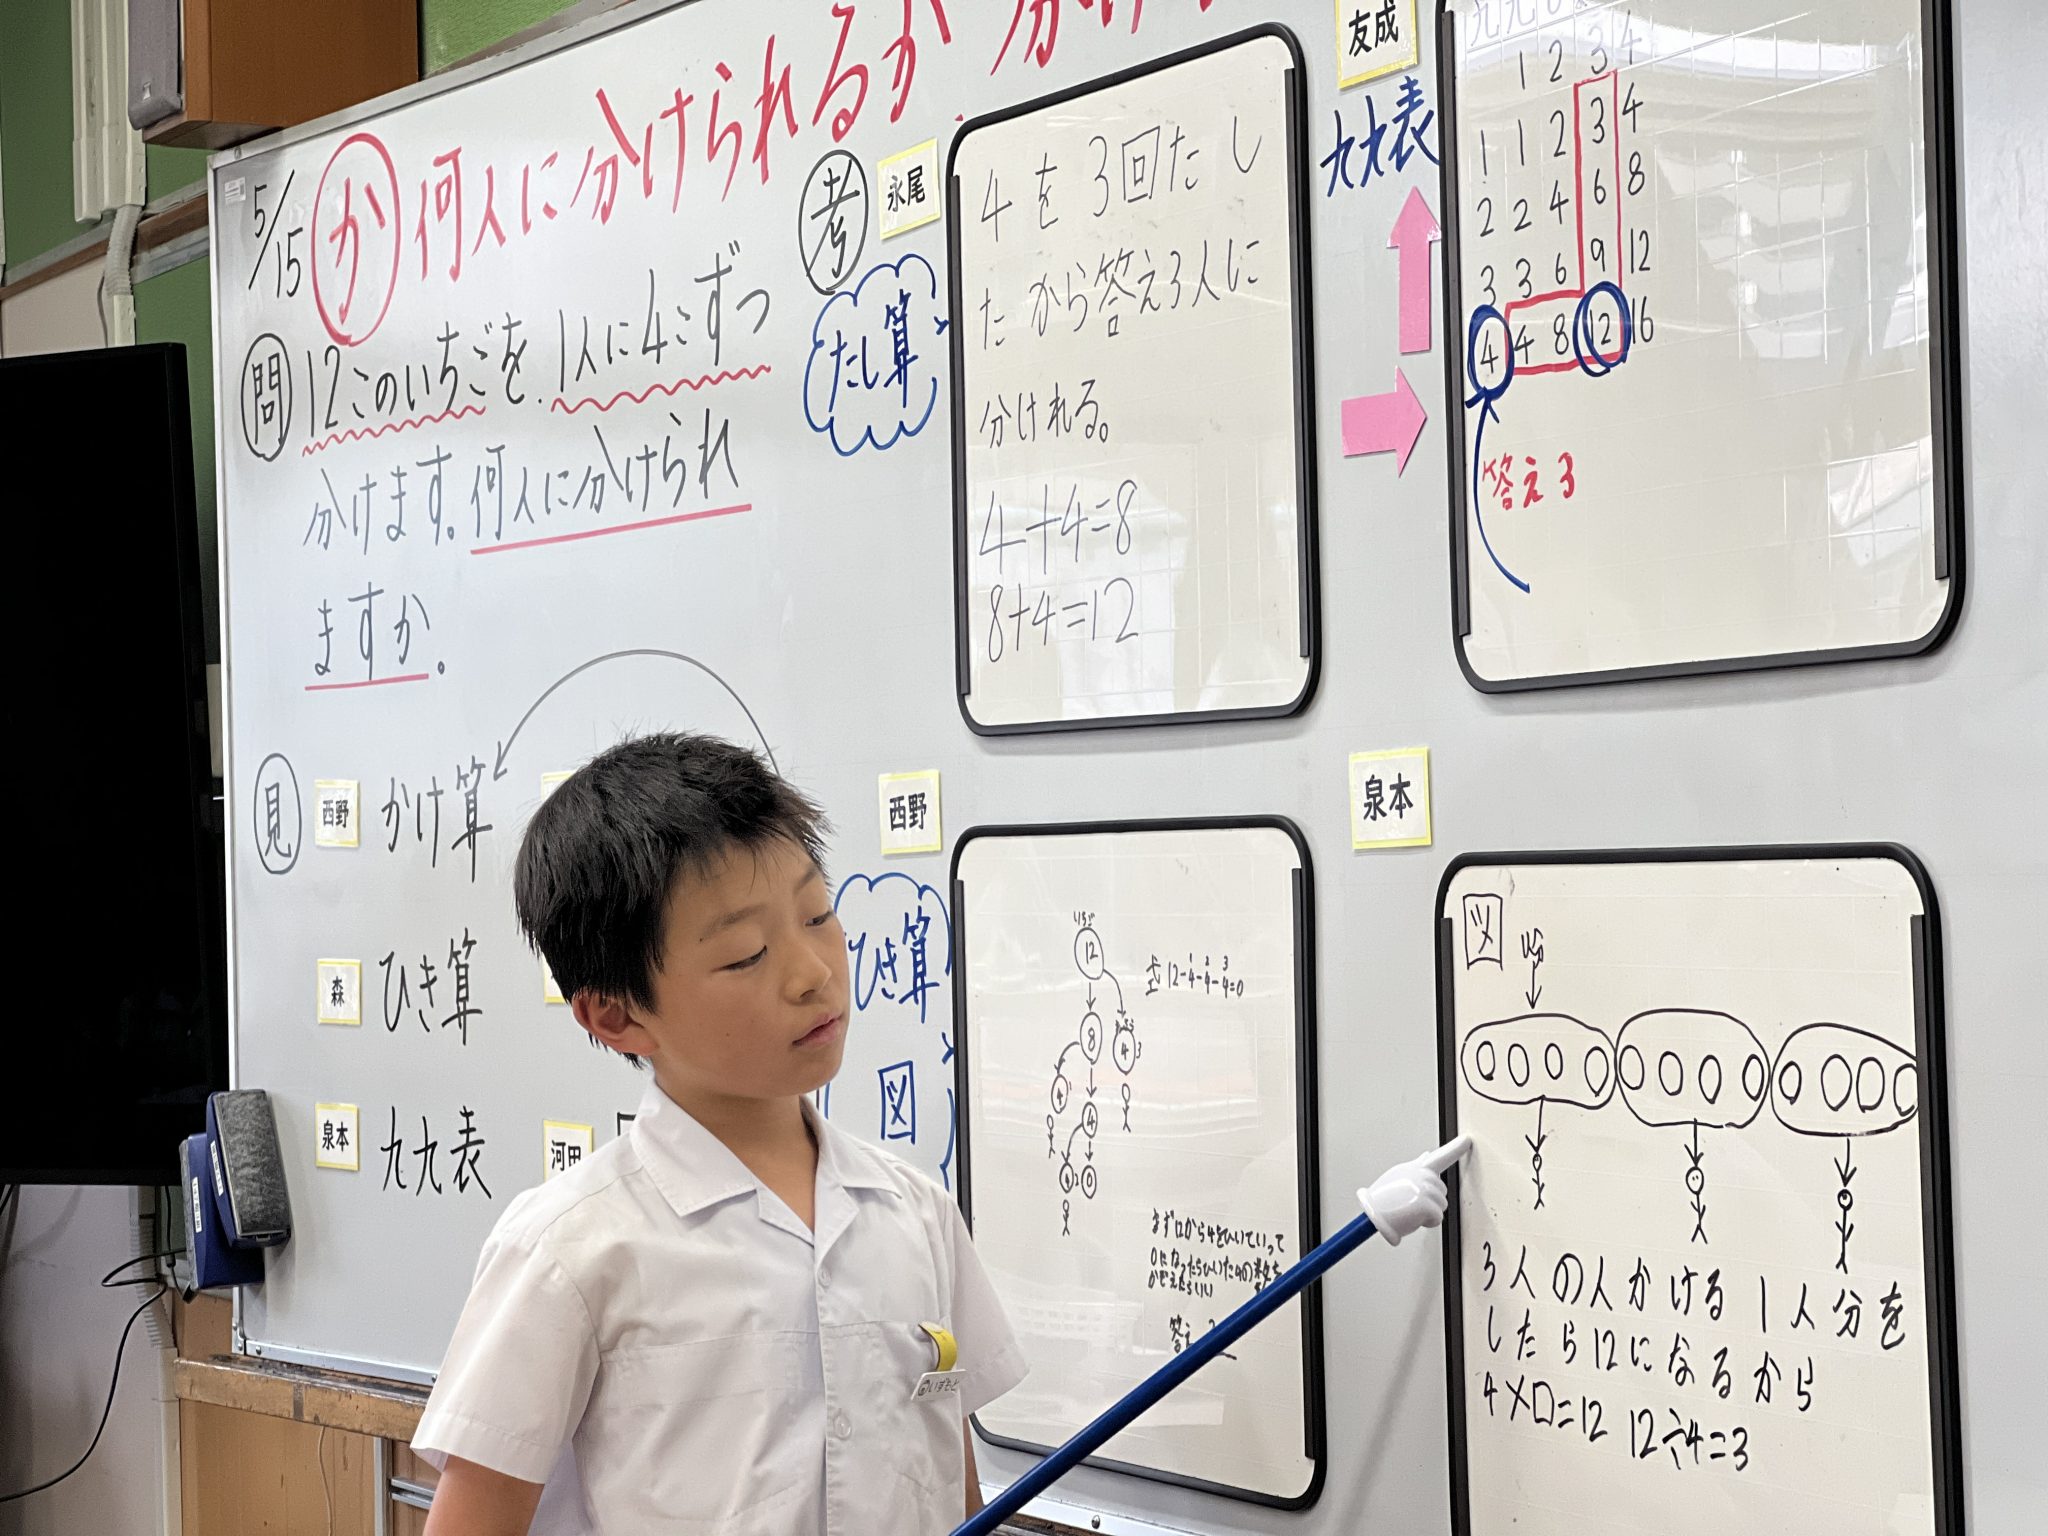 5/15
か 何人に分けられるか 分け
問 12このいちごを、1人に4こずつ
分けます。何人に分けられ
ますか。
見
西野 かけ算
森 ひき算
泉本 九九表
河田
考
永尾
たし算
4を3回たし
たから答え3人に
分けれる。
4+4=8
8+4=12
友成
九九表
1 2 3 4
1 1 2 3 4
2 2 4 6 8
3 3 6 9 12
4 4 8 12 16
答え3
西野
ひき算
図
いちご
12
8 4 3
4 4
4 2 0
式 12-4-4-4=0
1 2 3
まず12から4をひいていって
0になったらひいたの数を
かぞえたらいい
答え
泉本
図
3人の人かける1人分を
したら12になるから
4×□=12 12÷4=3
いずもと